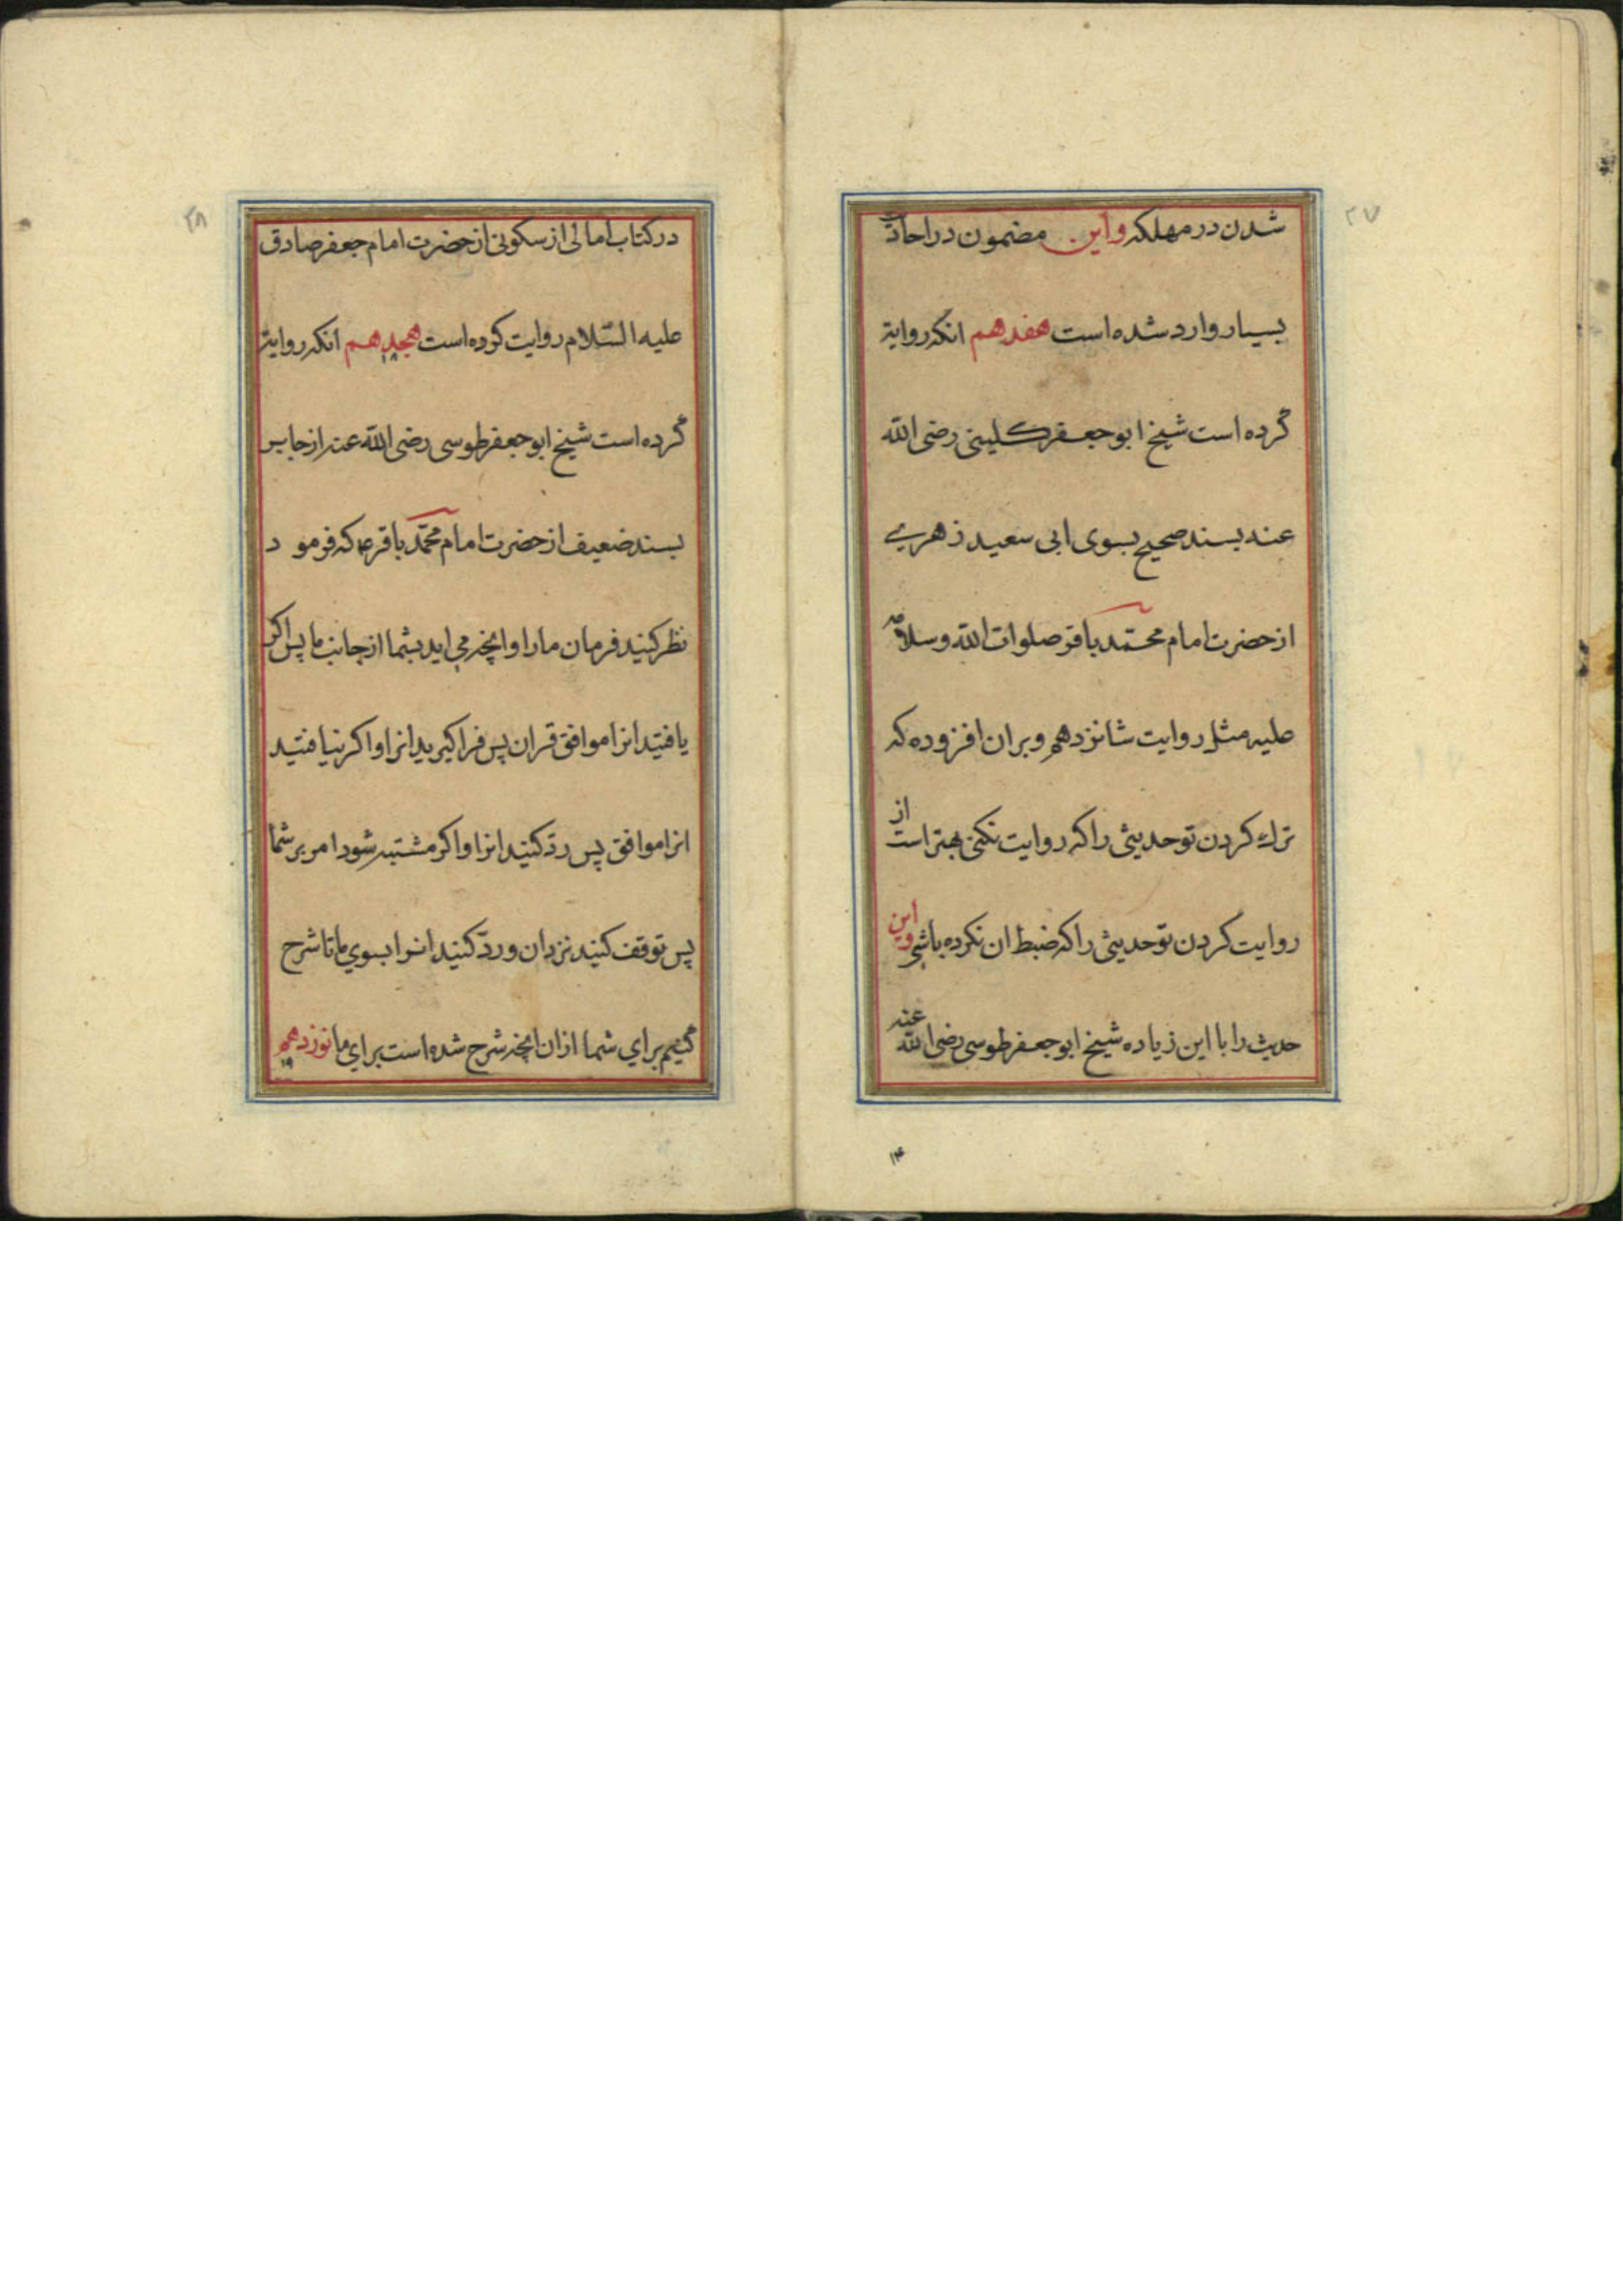 ۲۷
شدن در مهلکه و این مضمون در احادیث
بسیار وارد شده است هفدهم انکه روایة
کرده است شیخ ابو جعفر کلینی رضی الله
عنه بسند صحیح بسوی ابی سعید زهری
از حضرت امام محمّد باقر صلوات الله وسلامه
علیه مثل روایت شانزدهم و بران افزوده که
ترك کردن تو حدیثی را که روایت نکنی بهتر است از
روایت کردن تو حدیثی را که ضبط ان نکرده باشی و این
حدیث را با این زیاده شیخ ابو جعفر طوسی رضی الله عنه
۱۴
۲۸
در کتاب امالی از سکونی از حضرت امام جعفر صادق
علیه السّلام روایت کرده است هجدهم انکه روایة
۱۸
کرده است شیخ ابو جعفر طوسی رضی الله عنه از جابر
بسند ضعیف از حضرت امام محمّد باقر ع که فرمود
نظر کنید فرمان ما را و انچه می اید بشما از جانب ما پس اکر
یافتید انرا موافق قران پس فرا کیرید انرا و اکر نیافتید
انرا موافق پس ردّ کنید انرا و اکر مشتبه شود امر بر شما
پس توقف کنید نزد ان و ردّ کنید انرا بسوی ما تا شرح
کنیم برای شما از ان انچه شرح شده است برای ما نوزدهم
۱۹